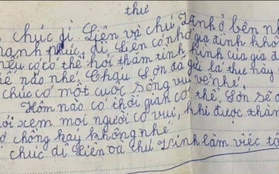 thư
chúc dì Liên và chú Trình ở bên nh
hạnh phúc, dì Liên có nhớ gia đình không
nếu có có thể hỏi thăm tình hình của gia đì
thế nào nhé. Cháu Sơn đã gửi lá thư này
chúc có một cuộc sống vui vẻ nhé,
Hôm nào có thời gian có thể, Sơn sẽ
hỏi xem mọi người có vui, khi được thăm
chồng hay không nhé
chúc dì Liên và chú Trình làm việc tố